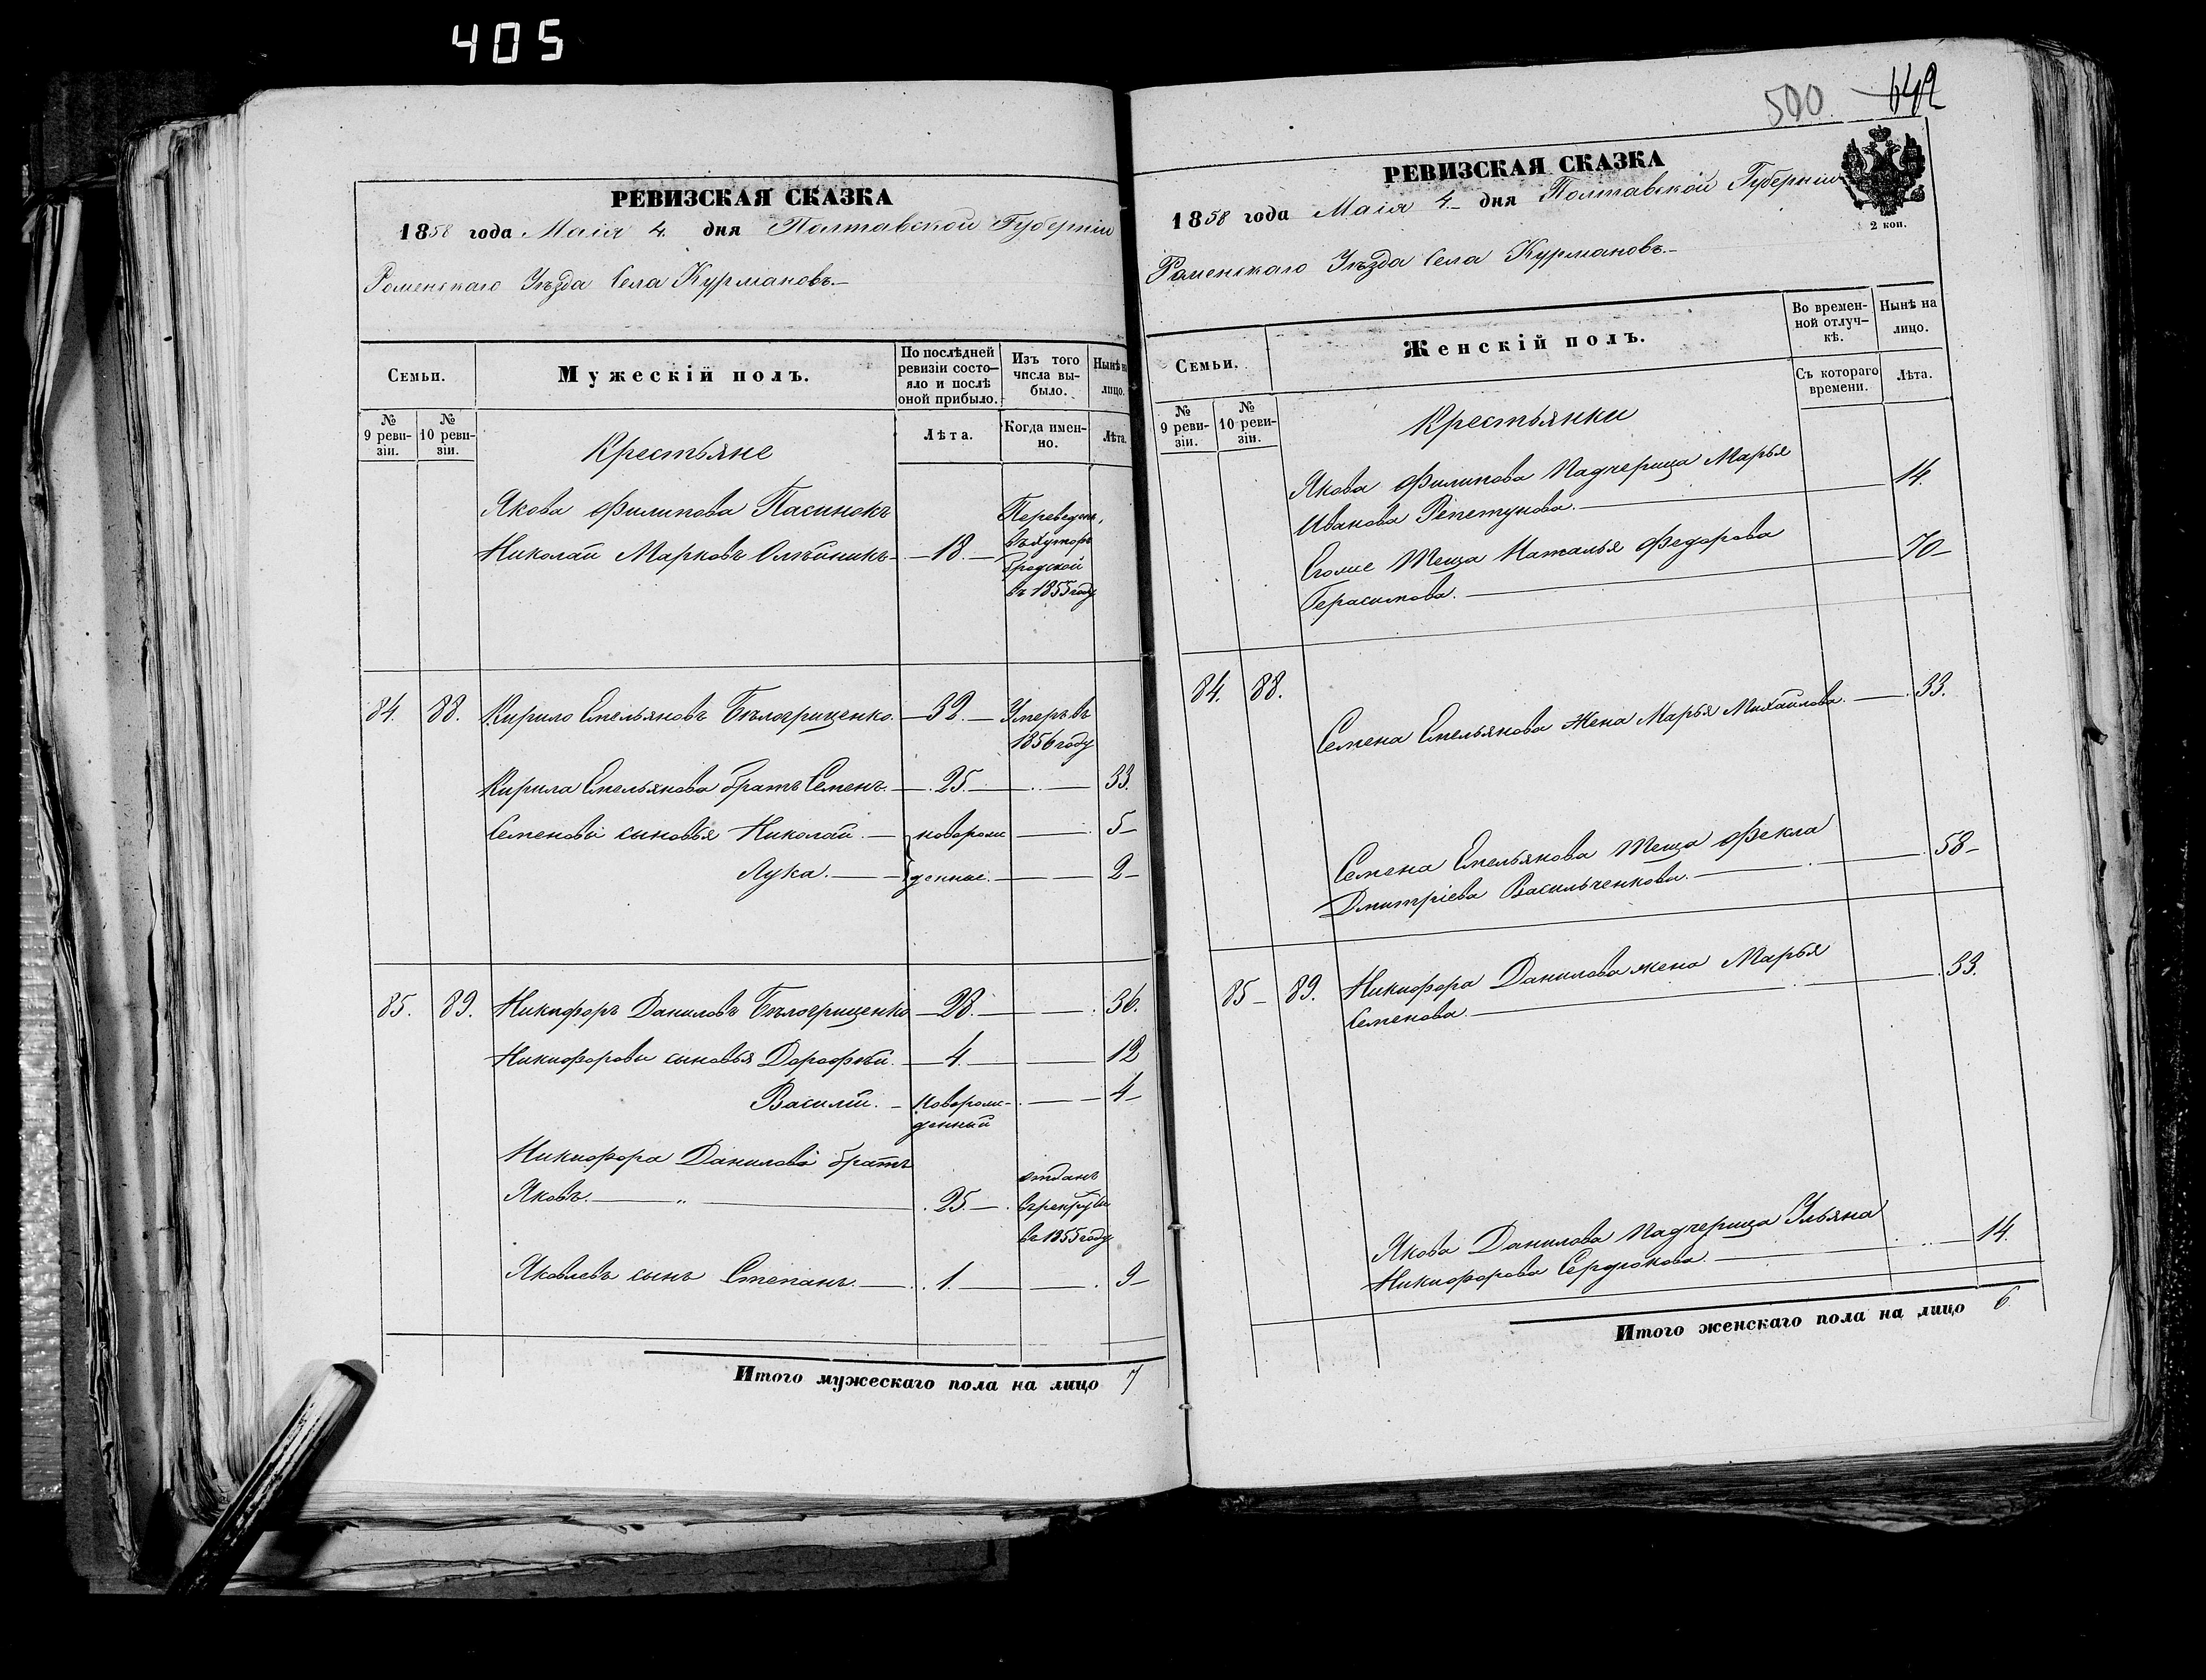 405
РЕВИЗСКАЯ СКАЗКА
1858 года Маія 4. дня Полтавской Губерніи
Роменскаго Уѣзда Села Курмановъ.
Семьи.
Мужескій полъ.
По послѣдней ревизіи состояло и послѣ оной прибыло.
Изъ того числа выбыло.
Нынѣ на лицо.
№ 9 ревизіи.
№ 10 ревизіи.
Лѣта.
Когда именно.
Лѣта.
Крестьяне
Якова Филипова Пасинокъ
Николай Марковъ Олѣйникъ 18.
Переведенъ
въ хуторъ
въ 1855 году
84. 88. Кирило Емельяновъ Бѣлогрищенко. 32. Умеръ въ
1856 году
Кирила Емельянова братъ Семенъ 25. 33.
Семенови сыновья Николай новорож 5
Лука. денные. 2
85. 89. Никифоръ Даниловъ Бѣлогрищенко 28. 36.
Никифорови сыновья Дорофѣй. 4. 12
Василій. новорож-
денный 4
Никифора Данилова братъ
Яковъ. 25. отданъ
въ рекруты
въ 1855 году
Яковлевъ сынъ Степанъ. 1. 9
Итого мужескаго пола на лицо 7
500 642
РЕВИЗСКАЯ СКАЗКА
1858 года Маія 4. дня Полтавской Губерніи
2 коп.
Роменскаго Уѣзда Села Курмановъ.
Семьи.
Женскій полъ.
Во временной отлучкѣ.
Нынѣ на лицо.
№ 9 ревизіи.
№ 10 ревизіи.
Съ котораго времени.
Лѣта.
Крестьянки
Якова Филипова Падчерица Марья
Иванова Репетунова. 14.
Егоже Теща Наталья Федорова
Герасимова. 70
84. 88. Семена Емельянова Жена Марья Михайлова. 33.
Семена Емельянова Теща Фекла
Дмитріева Васильченкова. 58
85 89. Никифора Данилова жена Марья
Семенова. 33.
Якова Данилова Падчерица Ульяна
Никифорова Сердюкова. 14.
Итого женскаго пола на лицо 6